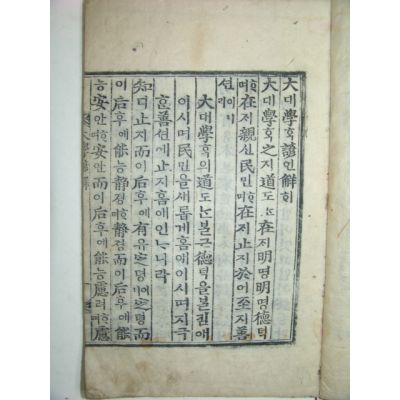 大대學ᄒᆞᆨ諺언解ᄒᆡ
大대學ᄒᆞᆨ之지道도ᄂᆞᆫ在ᄌᆡ明명明명德덕
ᄒᆞ며在ᄌᆡ親신民민ᄒᆞ며在ᄌᆡ止지於어至지善
션이니라
大대學ᄒᆞᆨ의道도ᄂᆞᆫ불근德덕을ᄇᆞᆯ킴애
이시며民민을새롭게홈애이시며지극
ᄒᆞᆫ善션에止지홈애인ᄂᆞ니라
知디止지而이后후에有유定뎡이니定뎡而
이后후에能능静졍ᄒᆞ며静졍而이后후에能
능安안ᄒᆞ며安안而이后후에能능慮려ᄒᆞ며慮
大學諺解